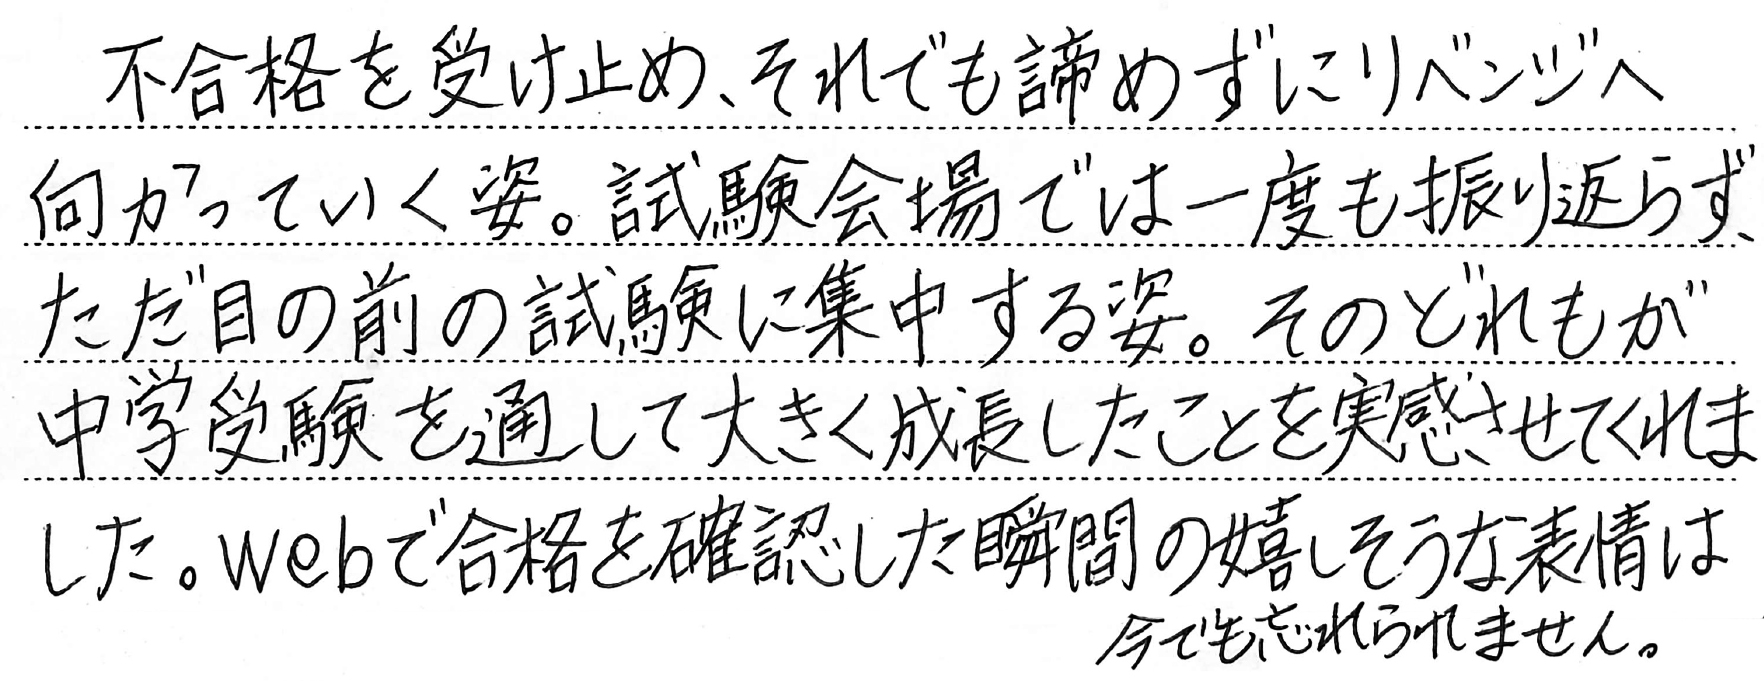 不合格を受け止め、それでも諦めずにリベンジへ
向かっていく姿。試験会場では一度も振り返らず、
ただ目の前の試験に集中する姿。そのどれもが
中学受験を通して大きく成長したことを実感させてくれま
した。webで合格を確認した瞬間の嬉しそうな表情は
今でも忘れられません。